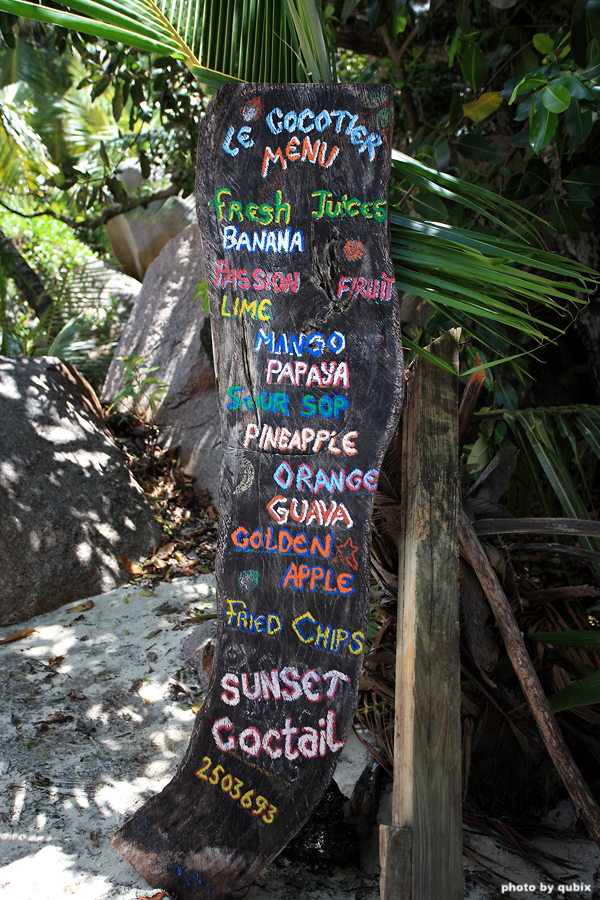 LE COCOTIER
MENU
FRESH JUICES
BANANA
PASSION FRUIT
LIME
MANGO
PAPAYA
SOUR SOP
PINEAPPLE
ORANGE
GUAVA
GOLDEN
APPLE
FRIED CHIPS
SUNSET
COCTAIL
2503693
photo by qubix